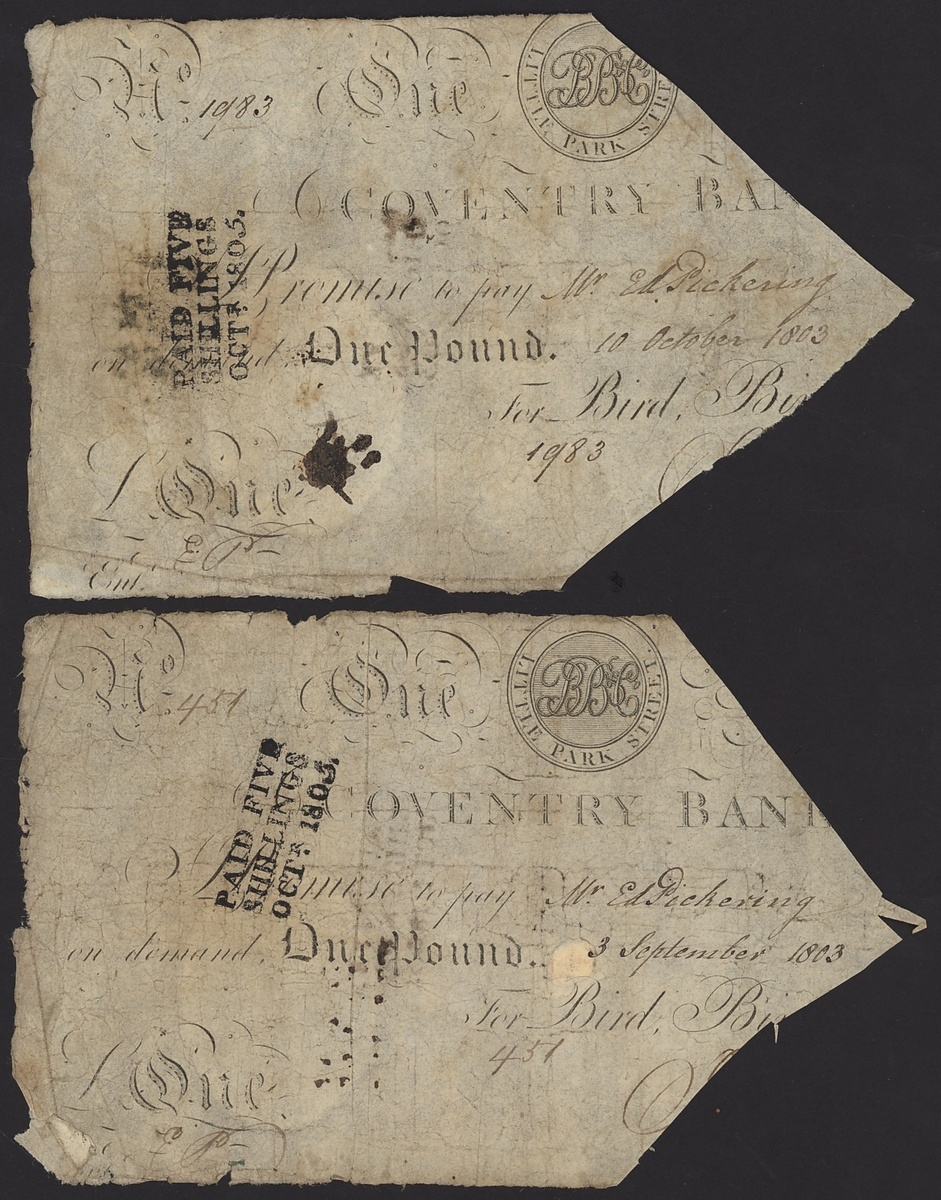 No. 1983 One
BB&C
LITTLE PARK STRE
COVENTRY BAN
I Promise to pay Mr. Ed. Pickering
on demand One Pound. 10 October 1803
For Bird, Bi
1983
£ One
E P
Ent.
PAID FIVE
SHILLINGS
OCTR. 1805.
No. 451 One
BB&C
LITTLE PARK STREET.
COVENTRY BAN
I Promise to pay Mr. Ed Pickering
on demand One Pound. 3 September 1803
For Bird, Bi
451
£ One
E P
PAID FIVE
SHILLINGS
OCTR. 1805.